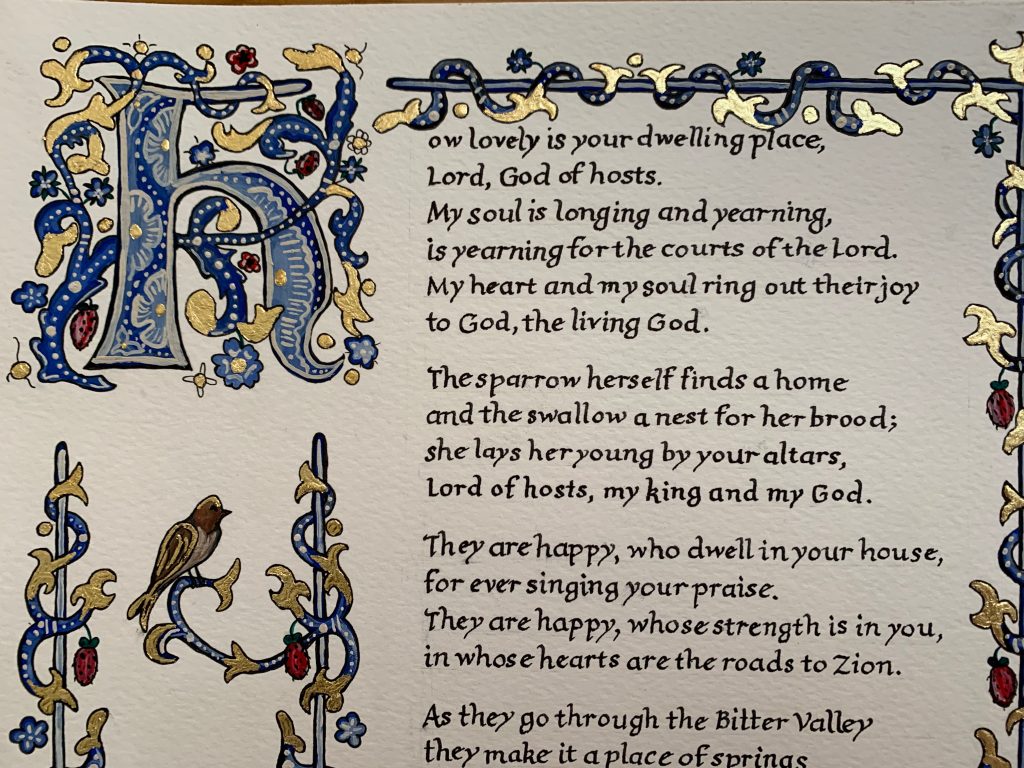 How lovely is your dwelling place,
Lord, God of hosts.
My soul is longing and yearning,
is yearning for the courts of the Lord.
My heart and my soul ring out their joy
to God, the living God.
The sparrow herself finds a home
and the swallow a nest for her brood;
she lays her young by your altars,
Lord of hosts, my king and my God.
They are happy, who dwell in your house,
for ever singing your praise.
They are happy, whose strength is in you,
in whose hearts are the roads to Zion.
As they go through the Bitter Valley
they make it a place of springs